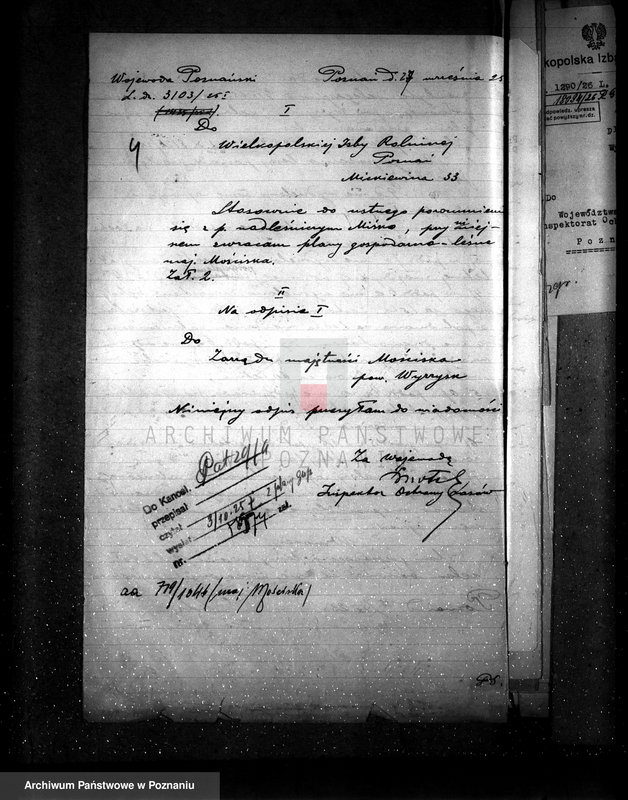 Wojewoda Poznański Poznań d. 27 września 25
L. dz. 3103/25 I
I
Do
4
Wielkopolskiej Izby Rolniczej
Poznań
Mickiewicza 33
Stosownie do ustnego porozumienia
się z p nadleśniczym , przy
zwracam plany gospodarczo-leśne
maj. Mościska.
Zał. 2.
II
Na odpisie I
Do
Zarządu majętności Mościska
pow. Wyrzysk
Niniejszy odpis przesyłam do wiadomości
ARCHIWUM PAŃSTWOWE
POZNAŃ
Za Wojewodę
Inspektor Ochrony Lasów
Do Kancel.
przepisał
czytał
wysłał 3/10.25
nr. zał.
aa 779/1044 (maj. Mościska)
kopolska Izba
1290/26 L.
Do
Województwa
nspektorat Och
Pozn
Archiwum Państwowe w Poznaniu